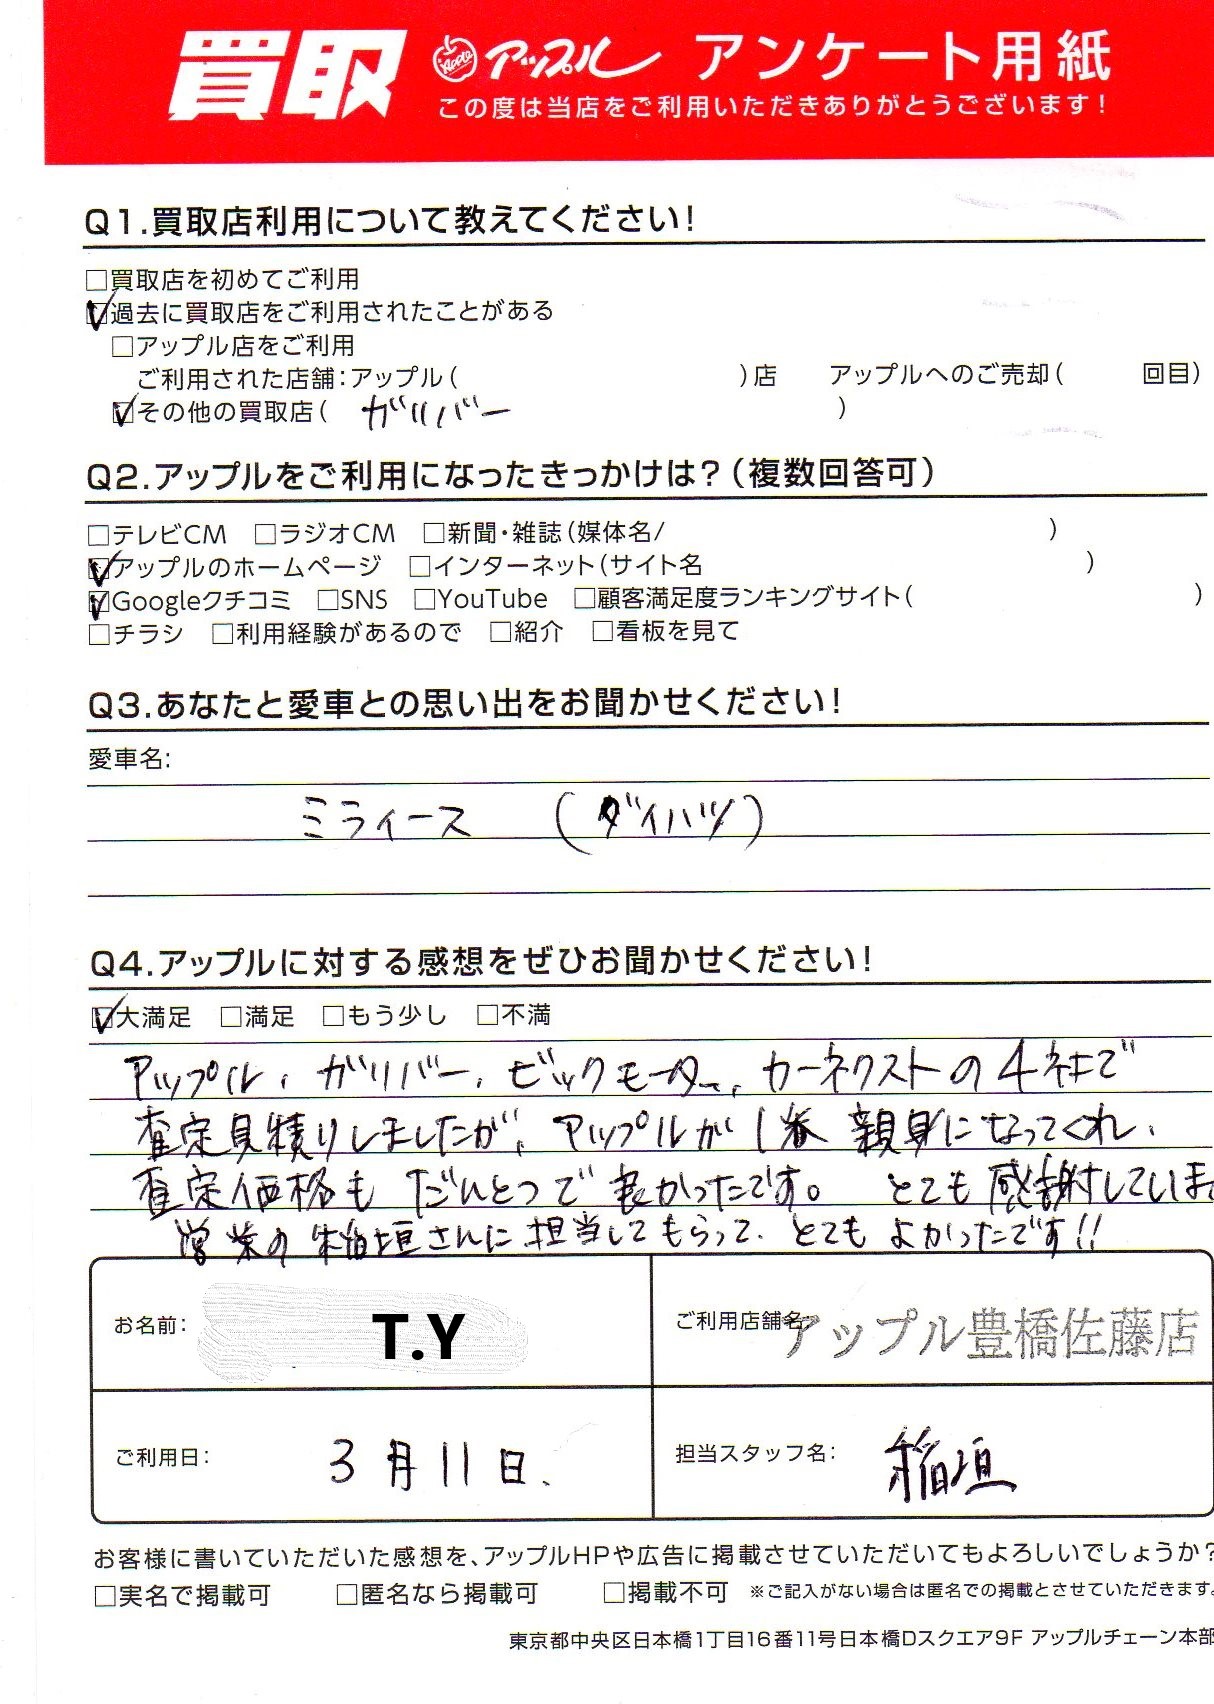 買取 Apple アップル アンケート用紙
この度は当店をご利用いただきありがとうございます!
Q1.買取店利用について教えてください!
□買取店を初めてご利用
☑過去に買取店をご利用されたことがある
□アップル店をご利用
ご利用された店舗:アップル( )店 アップルへのご売却( 回目)
☑その他の買取店( ガリバー )
Q2.アップルをご利用になったきっかけは?(複数回答可)
□テレビCM □ラジオCM □新聞・雑誌(媒体名/ )
☑アップルのホームページ □インターネット(サイト名 )
☑Googleクチコミ □SNS □YouTube □顧客満足度ランキングサイト( )
□チラシ □利用経験があるので □紹介 □看板を見て
Q3.あなたと愛車との思い出をお聞かせください!
愛車名:
ミライース (ダイハツ)
Q4.アップルに対する感想をぜひお聞かせください!
☑大満足 □満足 □もう少し □不満
アップル、ガリバー、ビックモーター、カーネクストの4社で
査定見積りしましたが、アップルが1番 親身になってくれ、
査定価格も だんとつで 良かったです。 とても感謝していま
営業の 稲垣さんに担当してもらって、とても よかったです!!
お名前: T.Y ご利用店舗名: アップル豊橋佐藤店
ご利用日: 3月11日、 担当スタッフ名: 稲垣
お客様に書いていただいた感想を、アップルHPや広告に掲載させていただいてもよろしいでしょうか?
□実名で掲載可 □匿名なら掲載可 □掲載不可 ※ご記入がない場合は匿名での掲載とさせていただきます。
東京都中央区日本橋1丁目16番11号日本橋Dスクエア9F アップルチェーン本部